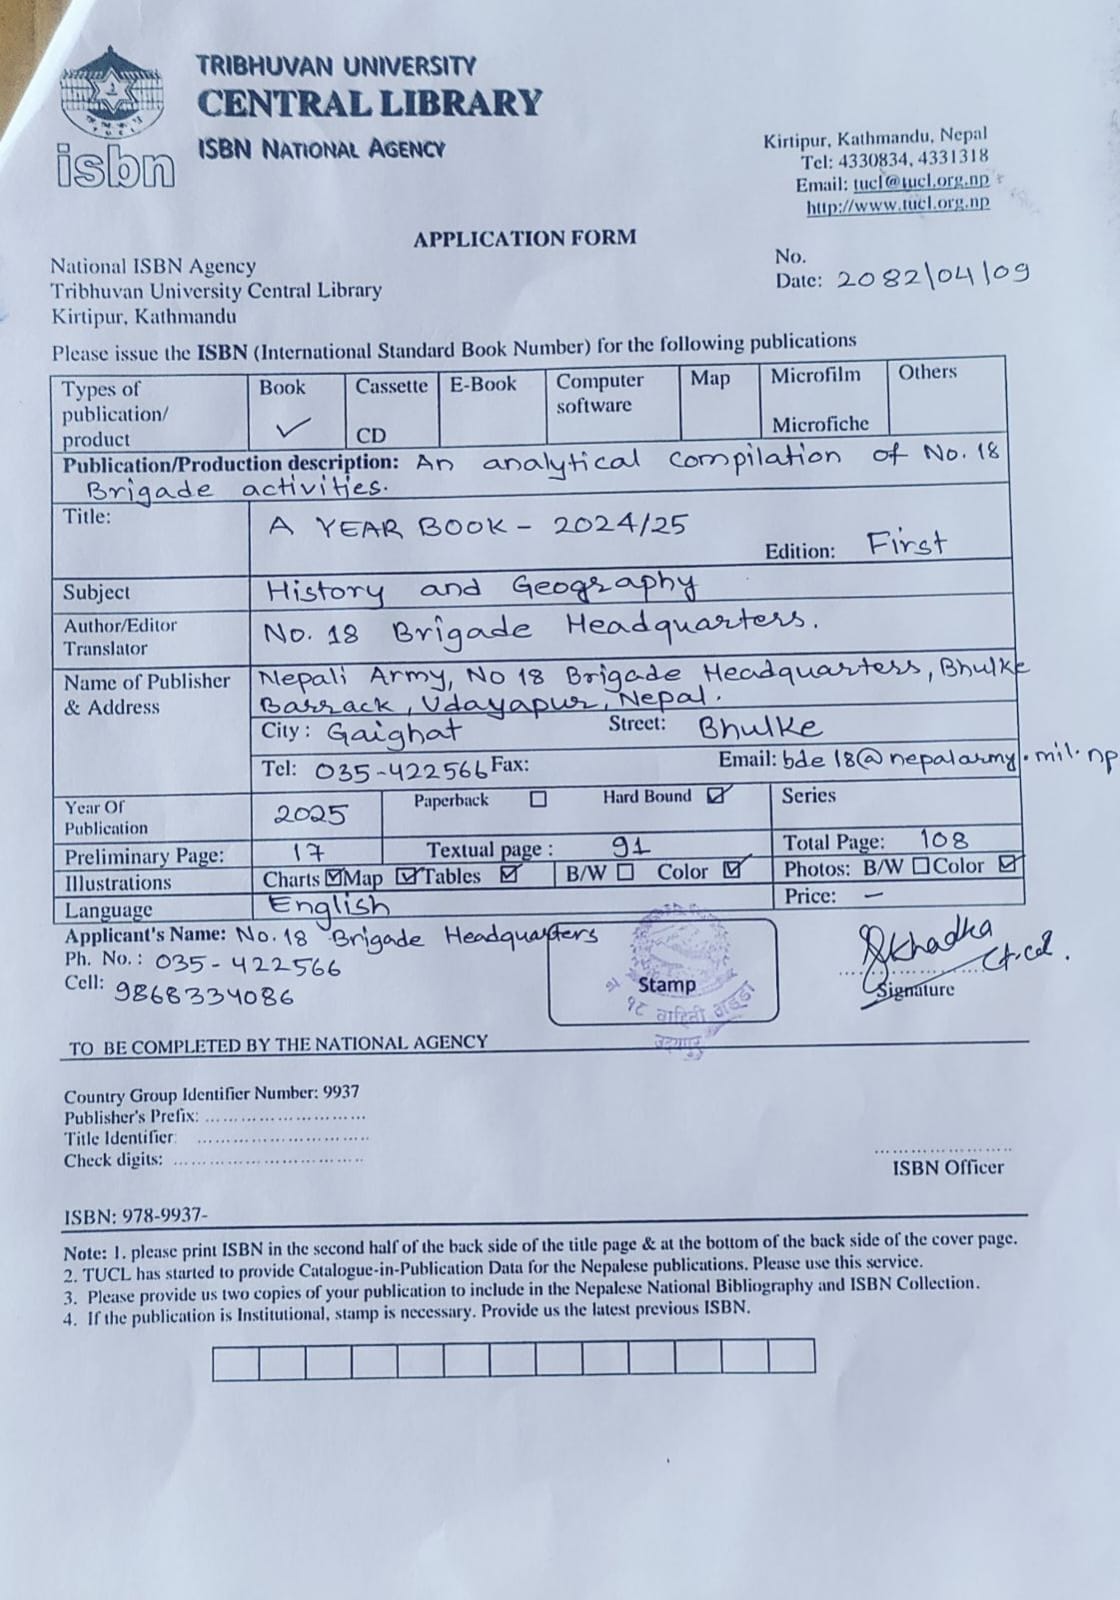 TRIBHUVAN UNIVERSITY
CENTRAL LIBRARY
ISBN NATIONAL AGENCY
isbn
Kirtipur, Kathmandu, Nepal
Tel: 4330834, 4331318
Email: tucl@tucl.org.np
http://www.tucl.org.np
APPLICATION FORM
No.
Date: 2082/04/09
National ISBN Agency
Tribhuvan University Central Library
Kirtipur, Kathmandu
Please issue the ISBN (International Standard Book Number) for the following publications
Types of publication/ product
Book ✓
Cassette CD
E-Book
Computer software
Map
Microfilm Microfiche
Others
Publication/Production description: An analytical compilation of No. 18
Brigade activities.
Title: A YEAR BOOK - 2024/25
Edition: First
Subject History and Geography
Author/Editor Translator No. 18 Brigade Headquarters.
Name of Publisher & Address Nepali Army, No 18 Brigade Headquarters, Bhulke
Barrack, Udayapur, Nepal.
City: Gaighat Street: Bhulke
Tel: 035-422566 Fax: Email: bde18@nepalarmy.mil.np
Year Of Publication 2025 Paperback ☐ Hard Bound ☑ Series
Preliminary Page: 17 Textual page: 91 Total Page: 108
Illustrations Charts ☑ Map ☑ Tables ☑ B/W ☐ Color ☑ Photos: B/W ☐ Color ☑
Language English Price: —
Applicant's Name: No. 18 Brigade Headquarters
Ph. No.: 035-422566
Cell: 9868334086
Stamp
१८ वाहिनी अड्डा
उदयपुर
Khadka
Lt. Col.
Signature
TO BE COMPLETED BY THE NATIONAL AGENCY
Country Group Identifier Number: 9937
Publisher's Prefix: ..............................
Title Identifier: ..............................
Check digits: ..............................
..............................
ISBN Officer
ISBN: 978-9937-
Note: 1. please print ISBN in the second half of the back side of the title page & at the bottom of the back side of the cover page.
2. TUCL has started to provide Catalogue-in-Publication Data for the Nepalese publications. Please use this service.
3. Please provide us two copies of your publication to include in the Nepalese National Bibliography and ISBN Collection.
4. If the publication is Institutional, stamp is necessary. Provide us the latest previous ISBN.